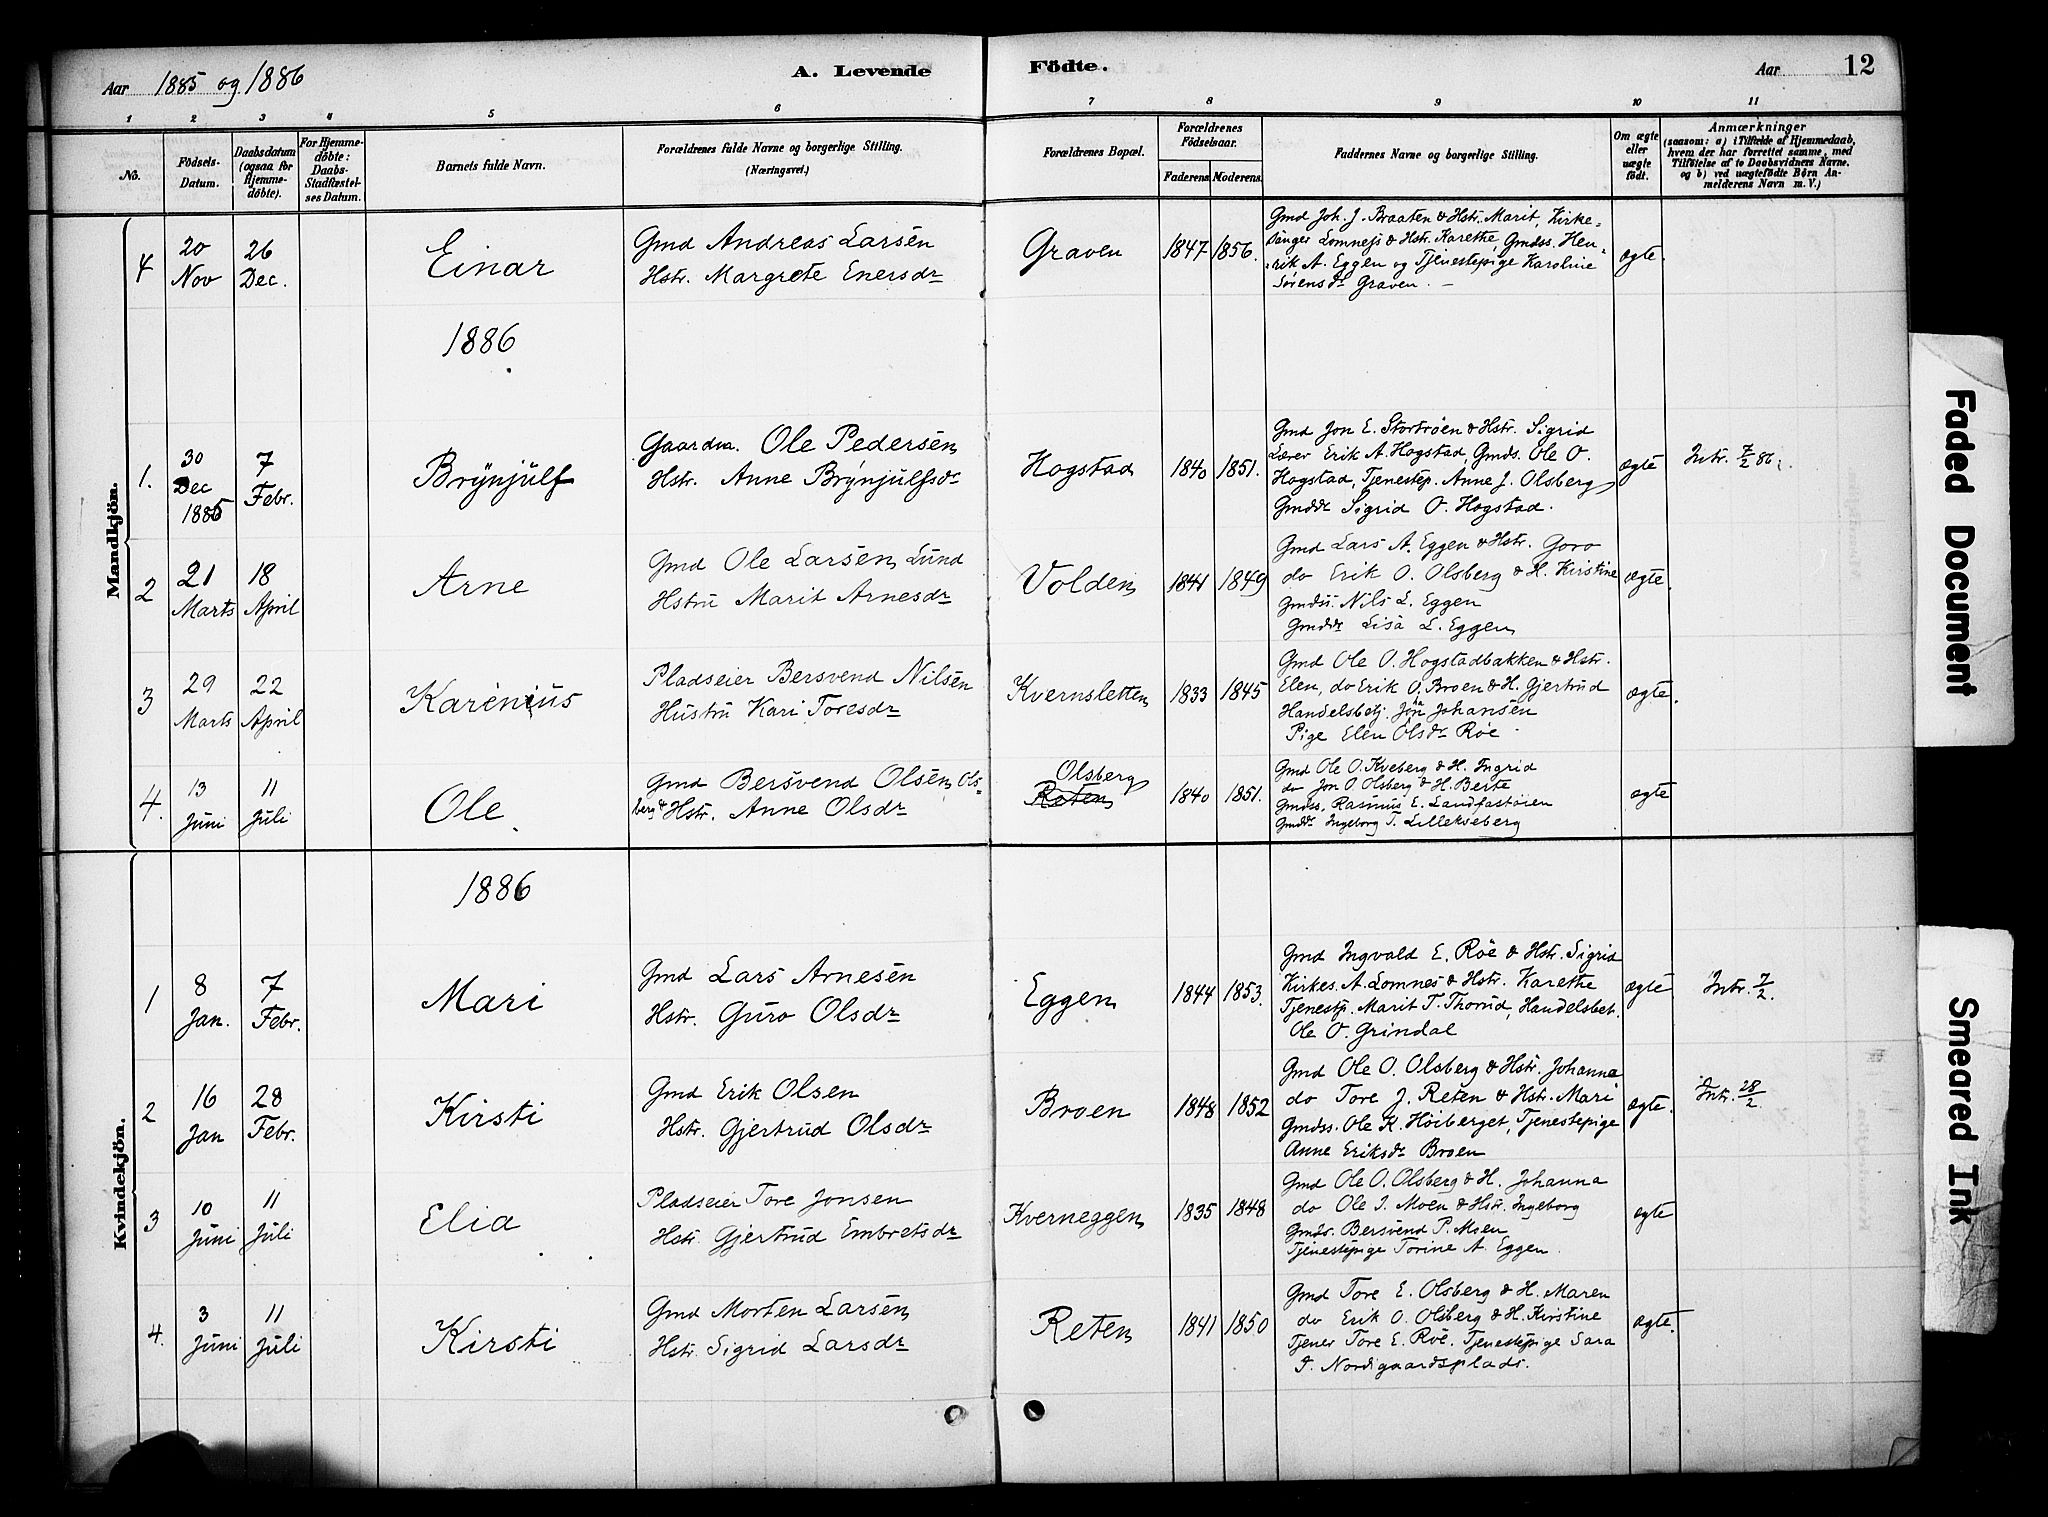 Aar 1885 og 1886
A. Levende Födte.
Aar 12
1 2 3 4 5 6 7 8 9 10 11
No.
Födsels-
Datum.
Daabsdatum
(ogsaa for
Hjemme-
döbte).
For Hjemme-
döbte:
Daabs-
Stadfæstel-
ses Datum.
Barnets fulde Navn.
Forældrenes fulde Navne og borgerlige Stilling.
(Næringsvei.)
Forældrenes Bopæl.
Forældrenes
Födselsaar.
Faderens. Moderens.
Faddernes Navne og borgerlige Stilling.
Om ægte
eller
uægte
födt.
Anmærkninger
(saasom: a) i Tilfælde af Hjemmedaab,
hvem der har forrettet samme, med
Tilföielse af to Daabsvidners Navne.
og b) ved uægtefödte Börn An-
melderens Navn m. V.)
Mandkjön.
4
20
Nov
26
Dec.
Einar
Gmd Andreas Larsen
Hstr. Margrete Enersdr
Graven
1847 1856.
Gmd Joh. J. Braaten & Hstr. Marit, Kirke-
sanger Lomnes & Hstr. Karethe, Gmdss. Hen-
rik A. Eggen og Tjenestepige Karoline
Sørensdr Graven. —
ægte.
1886
1.
30
Dec
1885
7
Febr.
Brynjulf
Gaardm. Ole Pedersen
Hstr. Anne Brynjulfsdr
Hogstad
1840 1851.
Gmd Jon E. Stortrøen & Hstr. Sigrid
Lærer Erik A. Hogstad, Gmds. Ole O.
Hogstad, Tjenestep. Anne J. Olsberg
Gmddr Sigrid O. Hogstad.
ægte
Intr. 7/2 86.
2
21
Marts
18
April
Arne
Gmd Ole Larsen Lund
Hstru Marit Arnesdr
Volden
1841 1849
Gmd Lars A. Eggen & Hstr. Goro
do Erik O. Olsberg & H. Kirstine
Gmdss. Nils L. Eggen
Gmddr Lisa L. Eggen
ægte.
3
29
Marts
22
April
Karenius
Pladseier Bersvend Nilsen
Hustru Kari Toresdr
Kvernsletten
1833 1845
Gmd Ole O. Hogstadbakken & Hstr.
Elen, do Erik O. Broen & H. Gjertrud
Handelsbetj. Johan Johansen
Pige Elen Olsdr Røe
ægte.
4.
13
Juni
11
Juli
Ole
Gmd Bersvend Olsen Ols-
berg & Hstr. Anne Olsdr
Olsberg
Reten
1840 1851.
Gmd Ole O. Kveberg & H. Ingrid
do Jon O. Olsberg & H. Berte
Gmdss. Rasmus E. Landfastøien
Gmddr Ingeborg T. Lillekveberg
ægte
Kvindekjön.
1886
1
8
Jan.
7
Febr.
Mari
Gmd Lars Arnesen
Hstr. Guro Olsdr
Eggen
1844 1853.
Gmd Ingvald E. Røe & Hstr. Sigrid
Kirkes. A. Lomnes & Hstr. Karethe
Tjenestp. Marit T. Thorud, Handelsbet.
Ole O. Grindal
ægte
Intr. 7/2.
2
16
Jan
28
Febr.
Kirsti
Gmd Erik Olsen
Hstr. Gjertrud Olsdr
Broen
1848 1852
Gmd Ole O. Olsberg & Hstr. Johanna
do Tore J. Reten & Hstr. Mari
Gmdss. Ole K. Høiberget, Tjenestepige
Anne Eriksdr Broen
ægte.
Intr. 28/2.
3
10
Juni
11
Juli
Elia
Pladseier Tore Jonsen
Hstr Gjertrud Embretsdr
Kverneggen
1835 1848
Gmd Ole O. Olsberg & H. Johanna
do Ole J. Moen & Hstr. Ingeborg
Gmds. Bersvend P. Moen
Tjenestepige Torine A. Eggen.
ægte
4.
3
Juni
11
Juli
Kirsti
Gmd Morten Larsen
Hstr. Sigrid Larsdr
Reten
1841 1850
Gmd Tore E. Olsberg & H. Maren
do Erik O. Olsberg & H. Kirstine
Tjener Tore E. Røe. Tjenestepige Sara
J. Nordigaardsplads.
ægte.
Faded Document
Smeared Ink